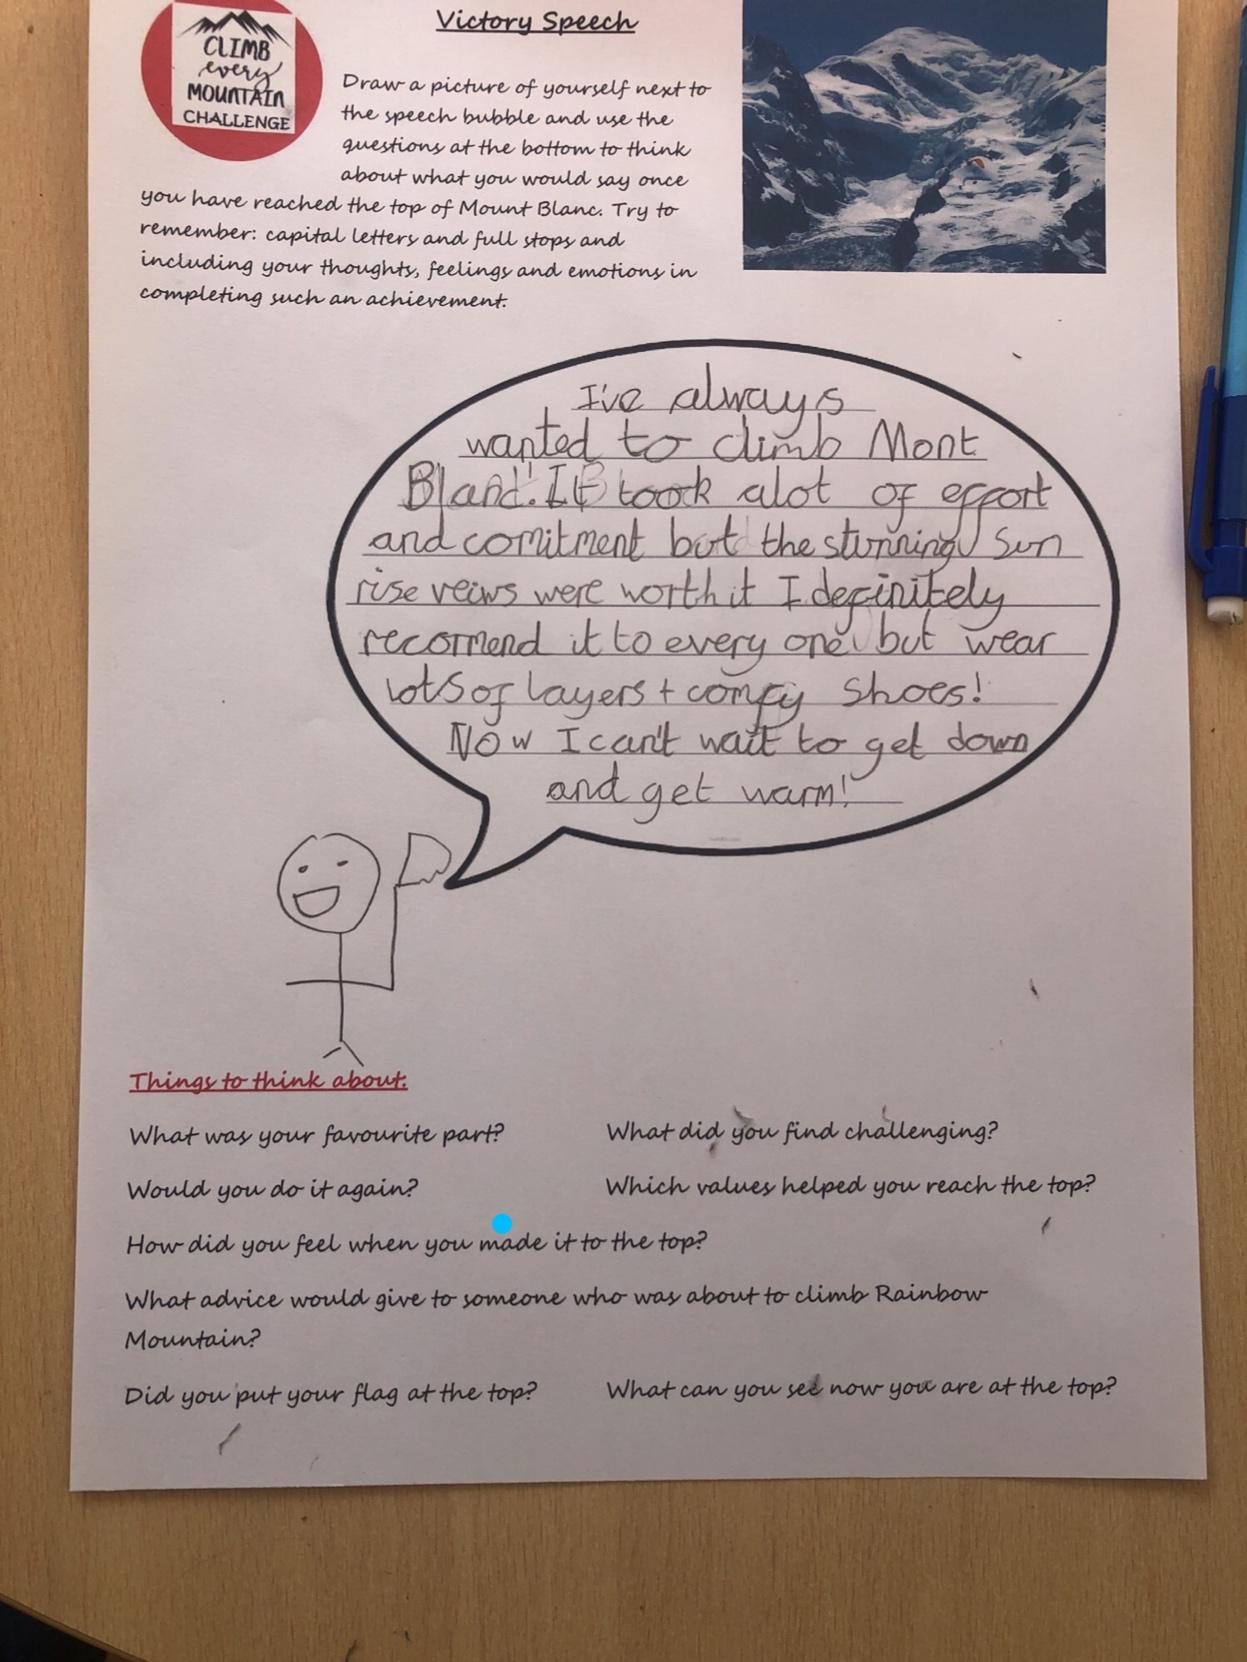 Victory Speech
CLIMB
every
MOUNTAIN
CHALLENGE
Draw a picture of yourself next to
the speech bubble and use the
questions at the bottom to think
about what you would say once
you have reached the top of Mount Blanc. Try to
remember: capital letters and full stops and
including your thoughts, feelings and emotions in
completing such an achievement.
I've always
wanted to climb Mont
Blanc. It took alot of effort
and comitment but the stunning Sun
rise veiws were worth it I definitely
recomend it to every one but wear
lots of layers + comfy shoes!
Now I can't wait to get down
and get warm!
Things to think about:
What was your favourite part? What did you find challenging?
Would you do it again? Which values helped you reach the top?
How did you feel when you made it to the top?
What advice would give to someone who was about to climb Rainbow
Mountain?
Did you put your flag at the top? What can you see now you are at the top?